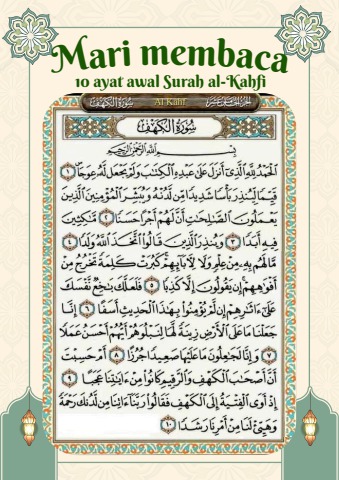 Mari membaca
10 ayat awal Surah al-Kahfi
سورة الكهف Al Kahf الجزء الخامس عشر
سُورَةُ الكَهْفِ
بِسْمِ اللَّهِ الرَّحْمَٰنِ الرَّحِيمِ
الْحَمْدُ لِلَّهِ الَّذِي أَنزَلَ عَلَىٰ عَبْدِهِ الْكِتَٰبَ وَلَمْ يَجْعَل لَّهُ عِوَجًا ١
قَيِّمًا لِّيُنذِرَ بَأْسًا شَدِيدًا مِّن لَّدُنْهُ وَيُبَشِّرَ الْمُؤْمِنِينَ الَّذِينَ
يَعْمَلُونَ الصَّٰلِحَٰتِ أَنَّ لَهُمْ أَجْرًا حَسَنًا ٢ مَّٰكِثِينَ
فِيهِ أَبَدًا ٣ وَيُنذِرَ الَّذِينَ قَالُوا اتَّخَذَ اللَّهُ وَلَدًا ٤
مَّا لَهُم بِهِ مِنْ عِلْمٍ وَلَا لِآبَائِهِمْ كَبُرَتْ كَلِمَةً تَخْرُجُ مِنْ
أَفْوَٰهِهِمْ إِن يَقُولُونَ إِلَّا كَذِبًا ٥ فَلَعَلَّكَ بَٰخِعٌ نَّفْسَكَ
عَلَىٰ ءَاثَٰرِهِمْ إِن لَّمْ يُؤْمِنُوا بِهَٰذَا الْحَدِيثِ أَسَفًا ٦ إِنَّا
جَعَلْنَا مَا عَلَى الْأَرْضِ زِينَةً لَّهَا لِنَبْلُوَهُمْ أَيُّهُمْ أَحْسَنُ عَمَلًا
٧ وَإِنَّا لَجَٰعِلُونَ مَا عَلَيْهَا صَعِيدًا جُرُزًا ٨ أَمْ حَسِبْتَ
أَنَّ أَصْحَٰبَ الْكَهْفِ وَالرَّقِيمِ كَانُوا مِنْ ءَايَٰتِنَا عَجَبًا ٩
إِذْ أَوَى الْفِتْيَةُ إِلَى الْكَهْفِ فَقَالُوا رَبَّنَا ءَاتِنَا مِن لَّدُنكَ رَحْمَةً
وَهَيِّئْ لَنَا مِنْ أَمْرِنَا رَشَدًا ١٠